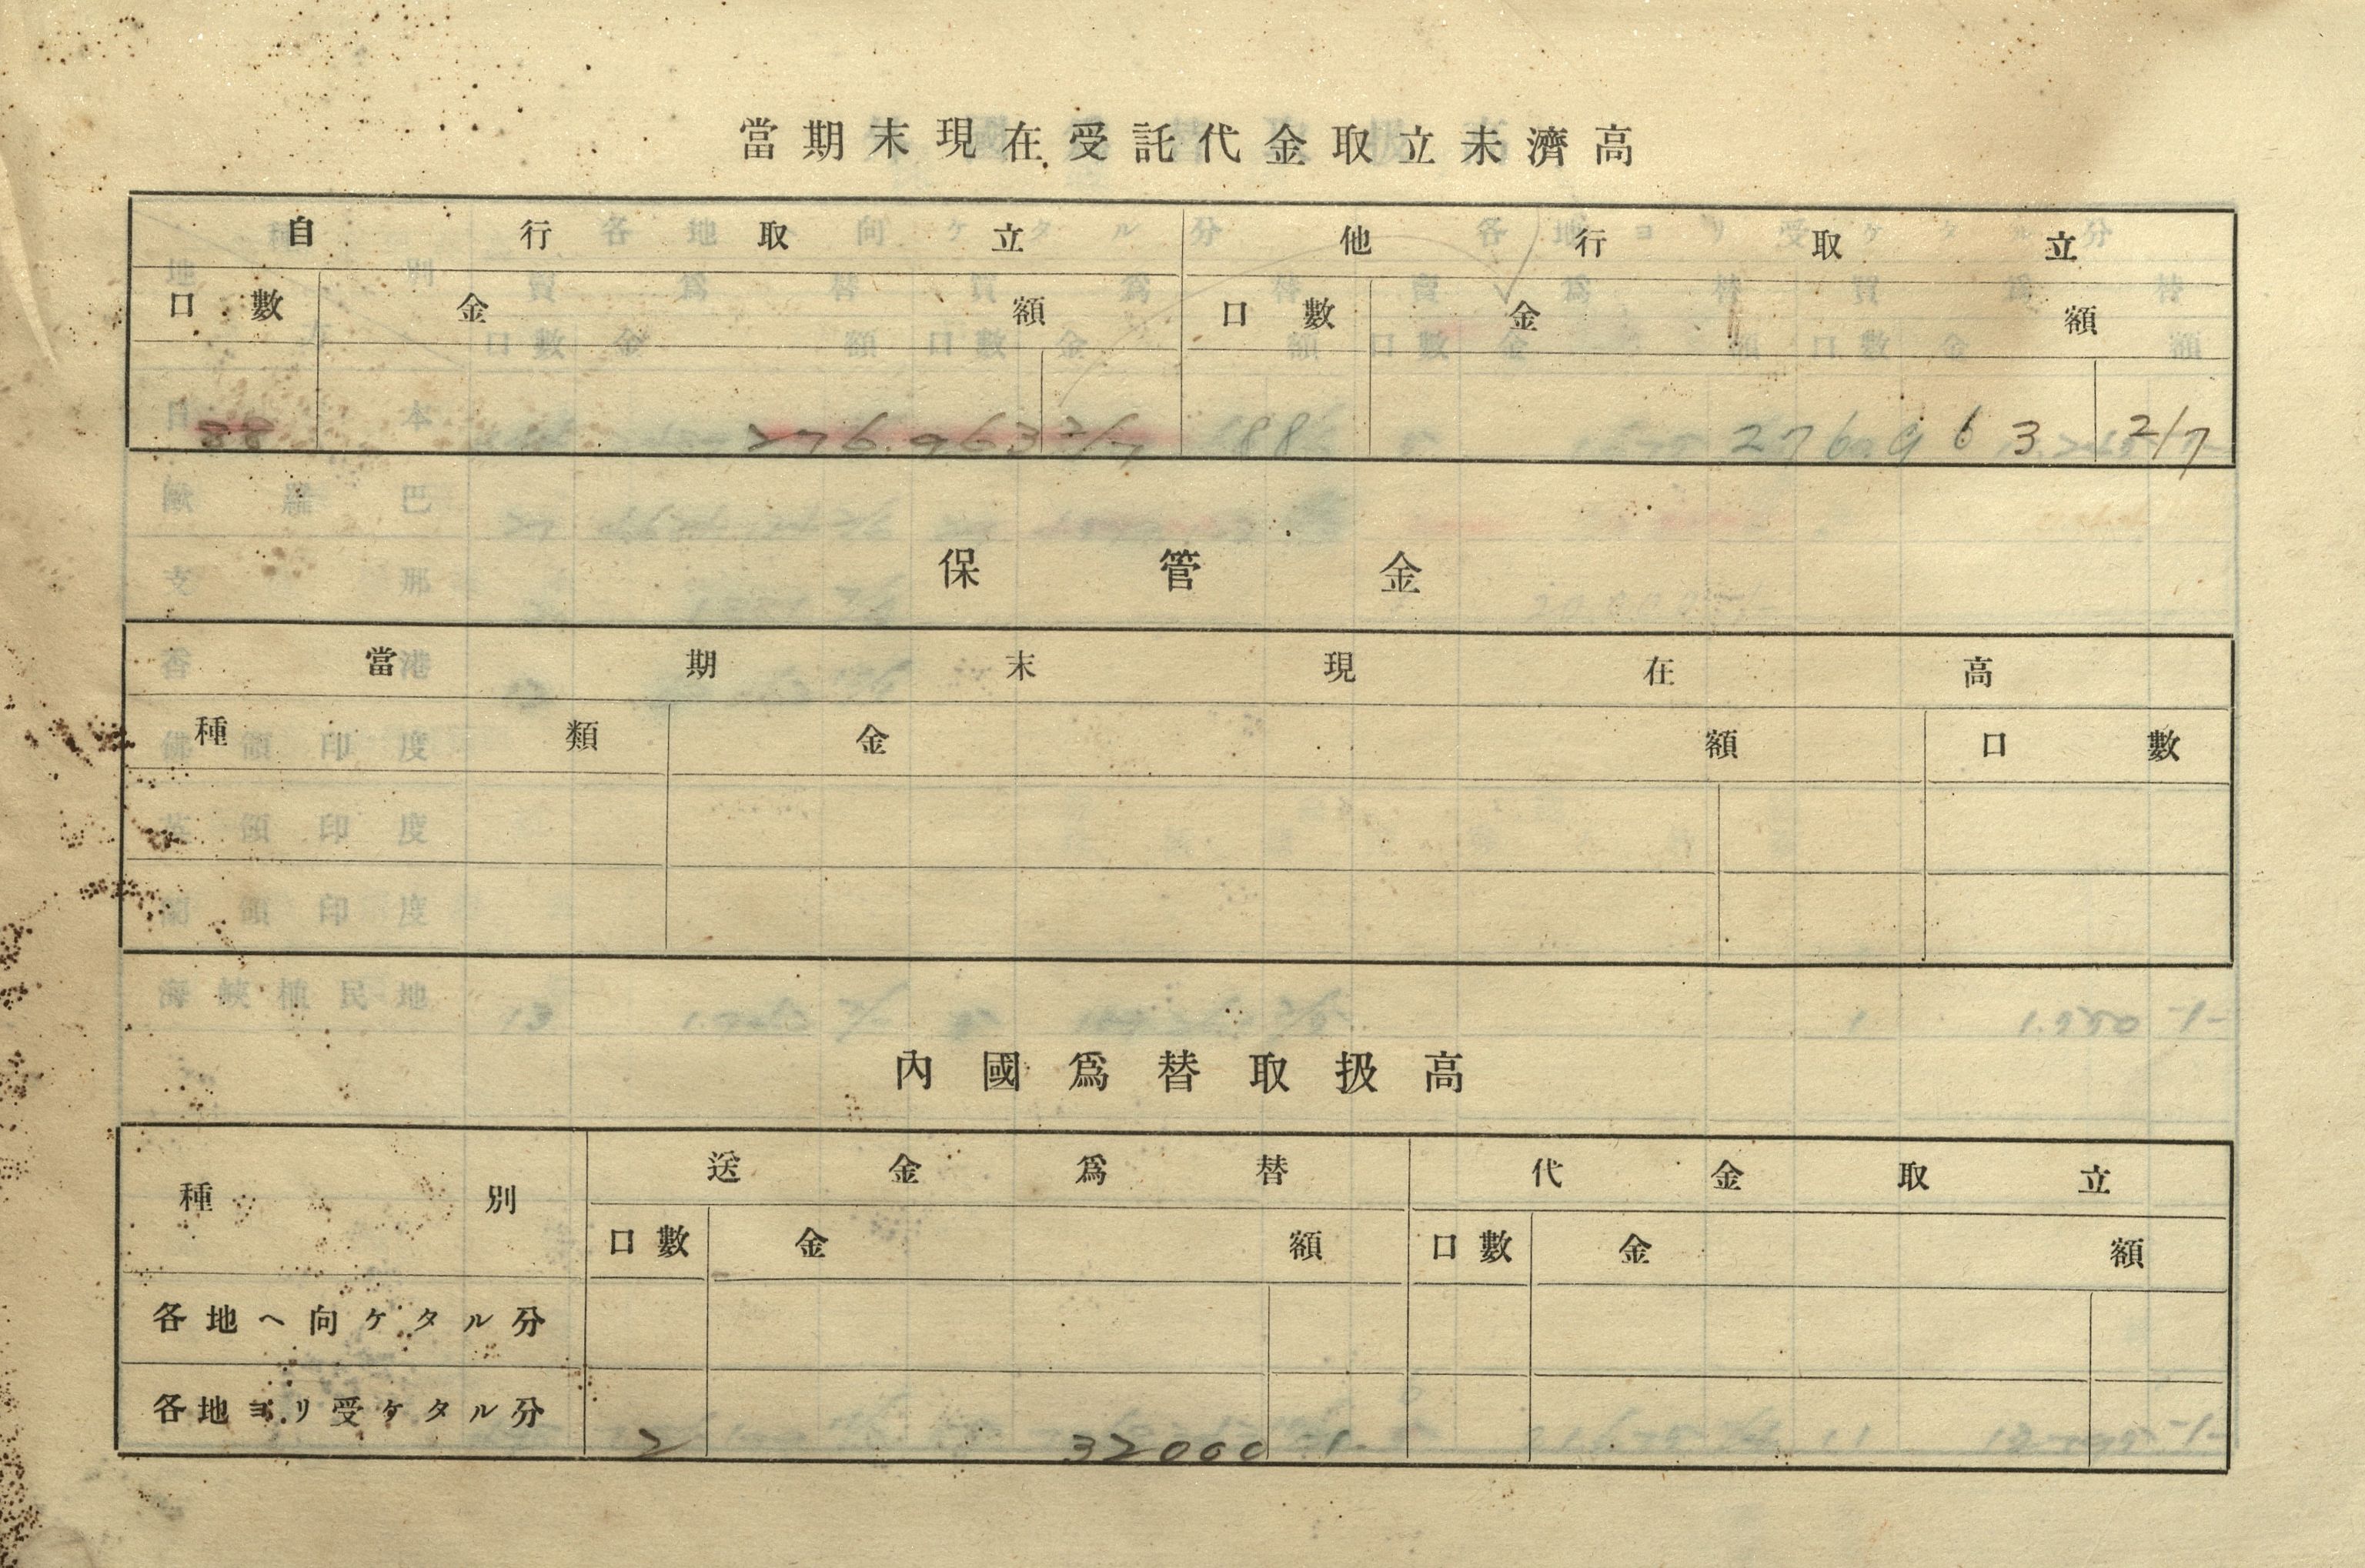 當期末現在受託代金取立未濟高
自行取立 他行取立
口數 金額 口數 金額
88 276.963 2/7 88 276963 2/7
保管金
當期末現在高
種類 金額 口數
內國爲替取扱高
種別 送金爲替 代金取立
口數 金額 口數 金額
各地ヘ向ケタル分
各地ヨリ受ケタル分 2 32000 -1-